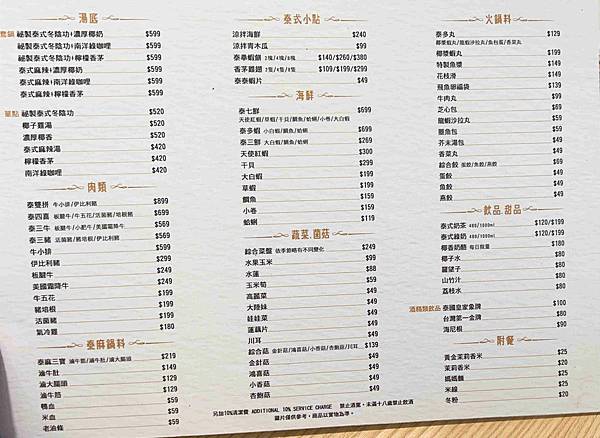 湯底
套鍋 祕製泰式冬陰功+濃厚椰奶 $599
祕製泰式冬陰功+南洋綠咖哩 $599
祕製泰式冬陰功+檸檬香茅 $599
泰式麻辣+濃厚椰奶 $599
泰式麻辣+南洋綠咖哩 $599
泰式麻辣+檸檬香茅 $599
單點 祕製泰式冬陰功 $520
椰子雞湯 $520
濃厚椰香 $520
泰式麻辣湯 $420
檸檬香茅 $420
南洋綠咖哩 $420
肉類
泰雙拼 牛小排/伊比利豬 $899
泰四喜 板腱牛/牛五花/活菌豬/培根豬 $699
泰三牛 板腱牛/小肥牛/美國霜降牛 $569
泰三豬 活菌豬/豬培根/伊比利豬 $569
牛小排 $599
伊比利豬 $299
板腱牛 $249
美國霜降牛 $249
牛五花 $199
豬培根 $199
活菌豬 $199
氣冷雞 $180
泰麻鍋料
泰麻三寶 滷牛筋/滷牛肚/滷大腸頭 $219
滷牛肚 $149
滷大腸頭 $149
滷牛筋 $149
鴨血 $59
米血 $59
老油條 $59
泰式小點
涼拌海鮮 $240
涼拌青木瓜 $99
泰舉蝦餅 2塊/4塊/8塊 $140/$260/$380
香茅雞翅 2隻/4隻/6隻 $109/$199/$299
泰泰蝦片 $49
海鮮
泰七鮮 $699
天使紅蝦/草蝦/干貝/鯛魚/蛤蜊/小卷/大白蝦
泰多蝦 小白蝦/鯛魚/蛤蜊 $669
泰三鮮 大白蝦/鯛魚/蛤蜊 $269
天使紅蝦 $300
干貝 $299
大白蝦 $199
草蝦 $199
鯛魚 $159
小卷 $159
蛤蜊 $119
蔬菜.菌菇
綜合菜盤 依季節略有不同變化 $249
水果玉米 $99
水蓮 $88
玉米筍 $59
高麗菜 $49
大陸妹 $49
娃娃菜 $49
蓮藕片 $49
川耳 $49
綜合菇 金針菇/鴻喜菇/小香菇/杏鮑菇/川耳 $139
金針菇 $49
鴻喜菇 $49
小香菇 $49
杏鮑菇 $49
另加10%清潔費 ADDITIONAL 10% SERVICE CHARGE 禁止酒駕，未滿十八歲禁止飲酒
圖片僅供參考，商品以實物為準。
火鍋料
泰多丸 $129
椰漿蝦丸/龍蝦沙拉丸/魚包蛋/香菜丸
椰漿蝦丸 $49
特製魚漿 $149
花枝滑 $149
飛魚卵福袋 $139
牛肉丸 $59
芝心包 $69
龍蝦沙拉丸 $59
蟹魚包 $59
芥末湯包 $49
香菜丸 $49
綜合餃 蛋餃/魚餃/燕餃 $69
蛋餃 $49
魚餃 $49
燕餃 $49
飲品.甜品
泰式奶茶 480/1000ml $120/$199
泰式綠奶 480/1000ml $120/$199
椰香奶酪 每日限量 $80
椰子水 $80
羅望子 $80
山竹汁 $80
荔枝水 $80
酒精類飲品 泰國皇家象牌 $100
台灣第一金牌 $80
海尼根 $90
附餐
黃金茉莉香米 $25
茉莉香米 $20
媽媽麵 $25
米線 $20
冬粉 $20